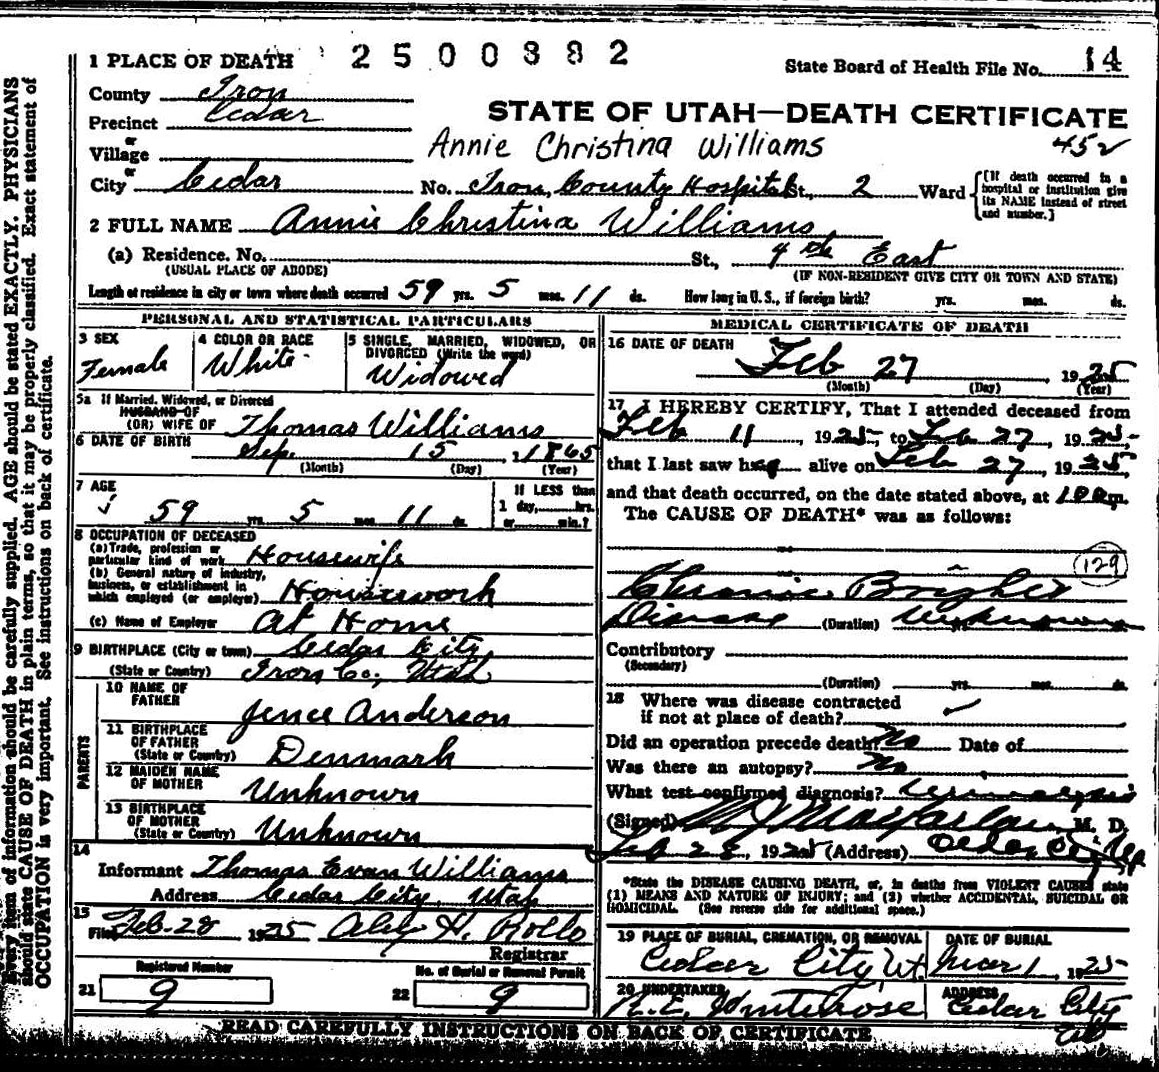 1 PLACE OF DEATH 2500882 State Board of Health File No. 14
County Iron
STATE OF UTAH—DEATH CERTIFICATE
Precinct Cedar
or
Village Annie Christina Williams 452
or
City Cedar No. Iron County Hospital St., 2 Ward
[If death occurred in a hospital or institution give its NAME instead of street and number.]
2 FULL NAME Annie Christina Williams
(a) Residence. No. St., 4th East
(USUAL PLACE OF ABODE) (IF NON-RESIDENT GIVE CITY OR TOWN AND STATE)
Length of residence in city or town where death occurred 59 yrs. 5 mos. 11 ds. How long in U. S., if foreign birth? yrs. mos. ds.
PERSONAL AND STATISTICAL PARTICULARS
3 SEX
Female
4 COLOR OR RACE
White
5 SINGLE, MARRIED, WIDOWED, OR
DIVORCED (Write the word)
Widowed
5a If Married, Widowed, or Divorced
HUSBAND OF
(OR) WIFE OF Thomas Williams
6 DATE OF BIRTH Sep. 15 1865
(Month) (Day) (Year)
7 AGE
59 yrs. 5 mos. 11 ds.
If LESS than
1 day, hrs.
or min.?
8 OCCUPATION OF DECEASED
(a) Trade, profession or
particular kind of work Housewife
(b) General nature of industry,
business, or establishment in
which employed (or employer) Housework
(c) Name of Employer At Home
9 BIRTHPLACE (City or town) Cedar City
(State or Country) Iron Co., Utah
PARENTS
10 NAME OF
FATHER Jence Anderson
11 BIRTHPLACE
OF FATHER
(State or Country) Denmark
12 MAIDEN NAME
OF MOTHER Unknown
13 BIRTHPLACE
OF MOTHER
(State or Country) Unknown
14
Informant Thomas Evan Williams
Address Cedar City, Utah
15
Filed Feb-28 1925 H. Rollo
Registrar
Registered Number
21 9
No. of Burial or Removal Permit
22 9
MEDICAL CERTIFICATE OF DEATH
16 DATE OF DEATH
Feb 27 1925
(Month) (Day) (Year)
17 I HEREBY CERTIFY, That I attended deceased from
Feb 11, 1925, to Feb 27, 1925,
that I last saw her alive on Feb 27, 1925
and that death occurred, on the date stated above, at m.
The CAUSE OF DEATH* was as follows:
129
Chronic Brights
Disease (Duration) Unknown
Contributory
(Secondary)
(Duration) yrs. mos. ds.
18 Where was disease contracted
if not at place of death?
Did an operation precede death? No Date of
Was there an autopsy? No
What test confirmed diagnosis? Urinalysis
(Signed) M J Macfarlane M. D.
Feb 28, 1925 (Address) Cedar City
*State the DISEASE CAUSING DEATH, or, in deaths from VIOLENT CAUSES state
(1) MEANS AND NATURE OF INJURY; and (2) whether ACCIDENTAL, SUICIDAL OR
HOMICIDAL. (See reverse side for additional space.)
19 PLACE OF BURIAL, CREMATION, OR REMOVAL
Cedar City Ut.
DATE OF BURIAL
Mar 1, 1925
20 UNDERTAKER
ADDRESS
Cedar City
READ CAREFULLY INSTRUCTIONS ON BACK OF CERTIFICATE
Every item of information should be carefully supplied. AGE should be stated EXACTLY. PHYSICIANS
should state CAUSE OF DEATH in plain terms, so that it may be properly classified. Exact statement of
OCCUPATION is very important. See instructions on back of certificate.